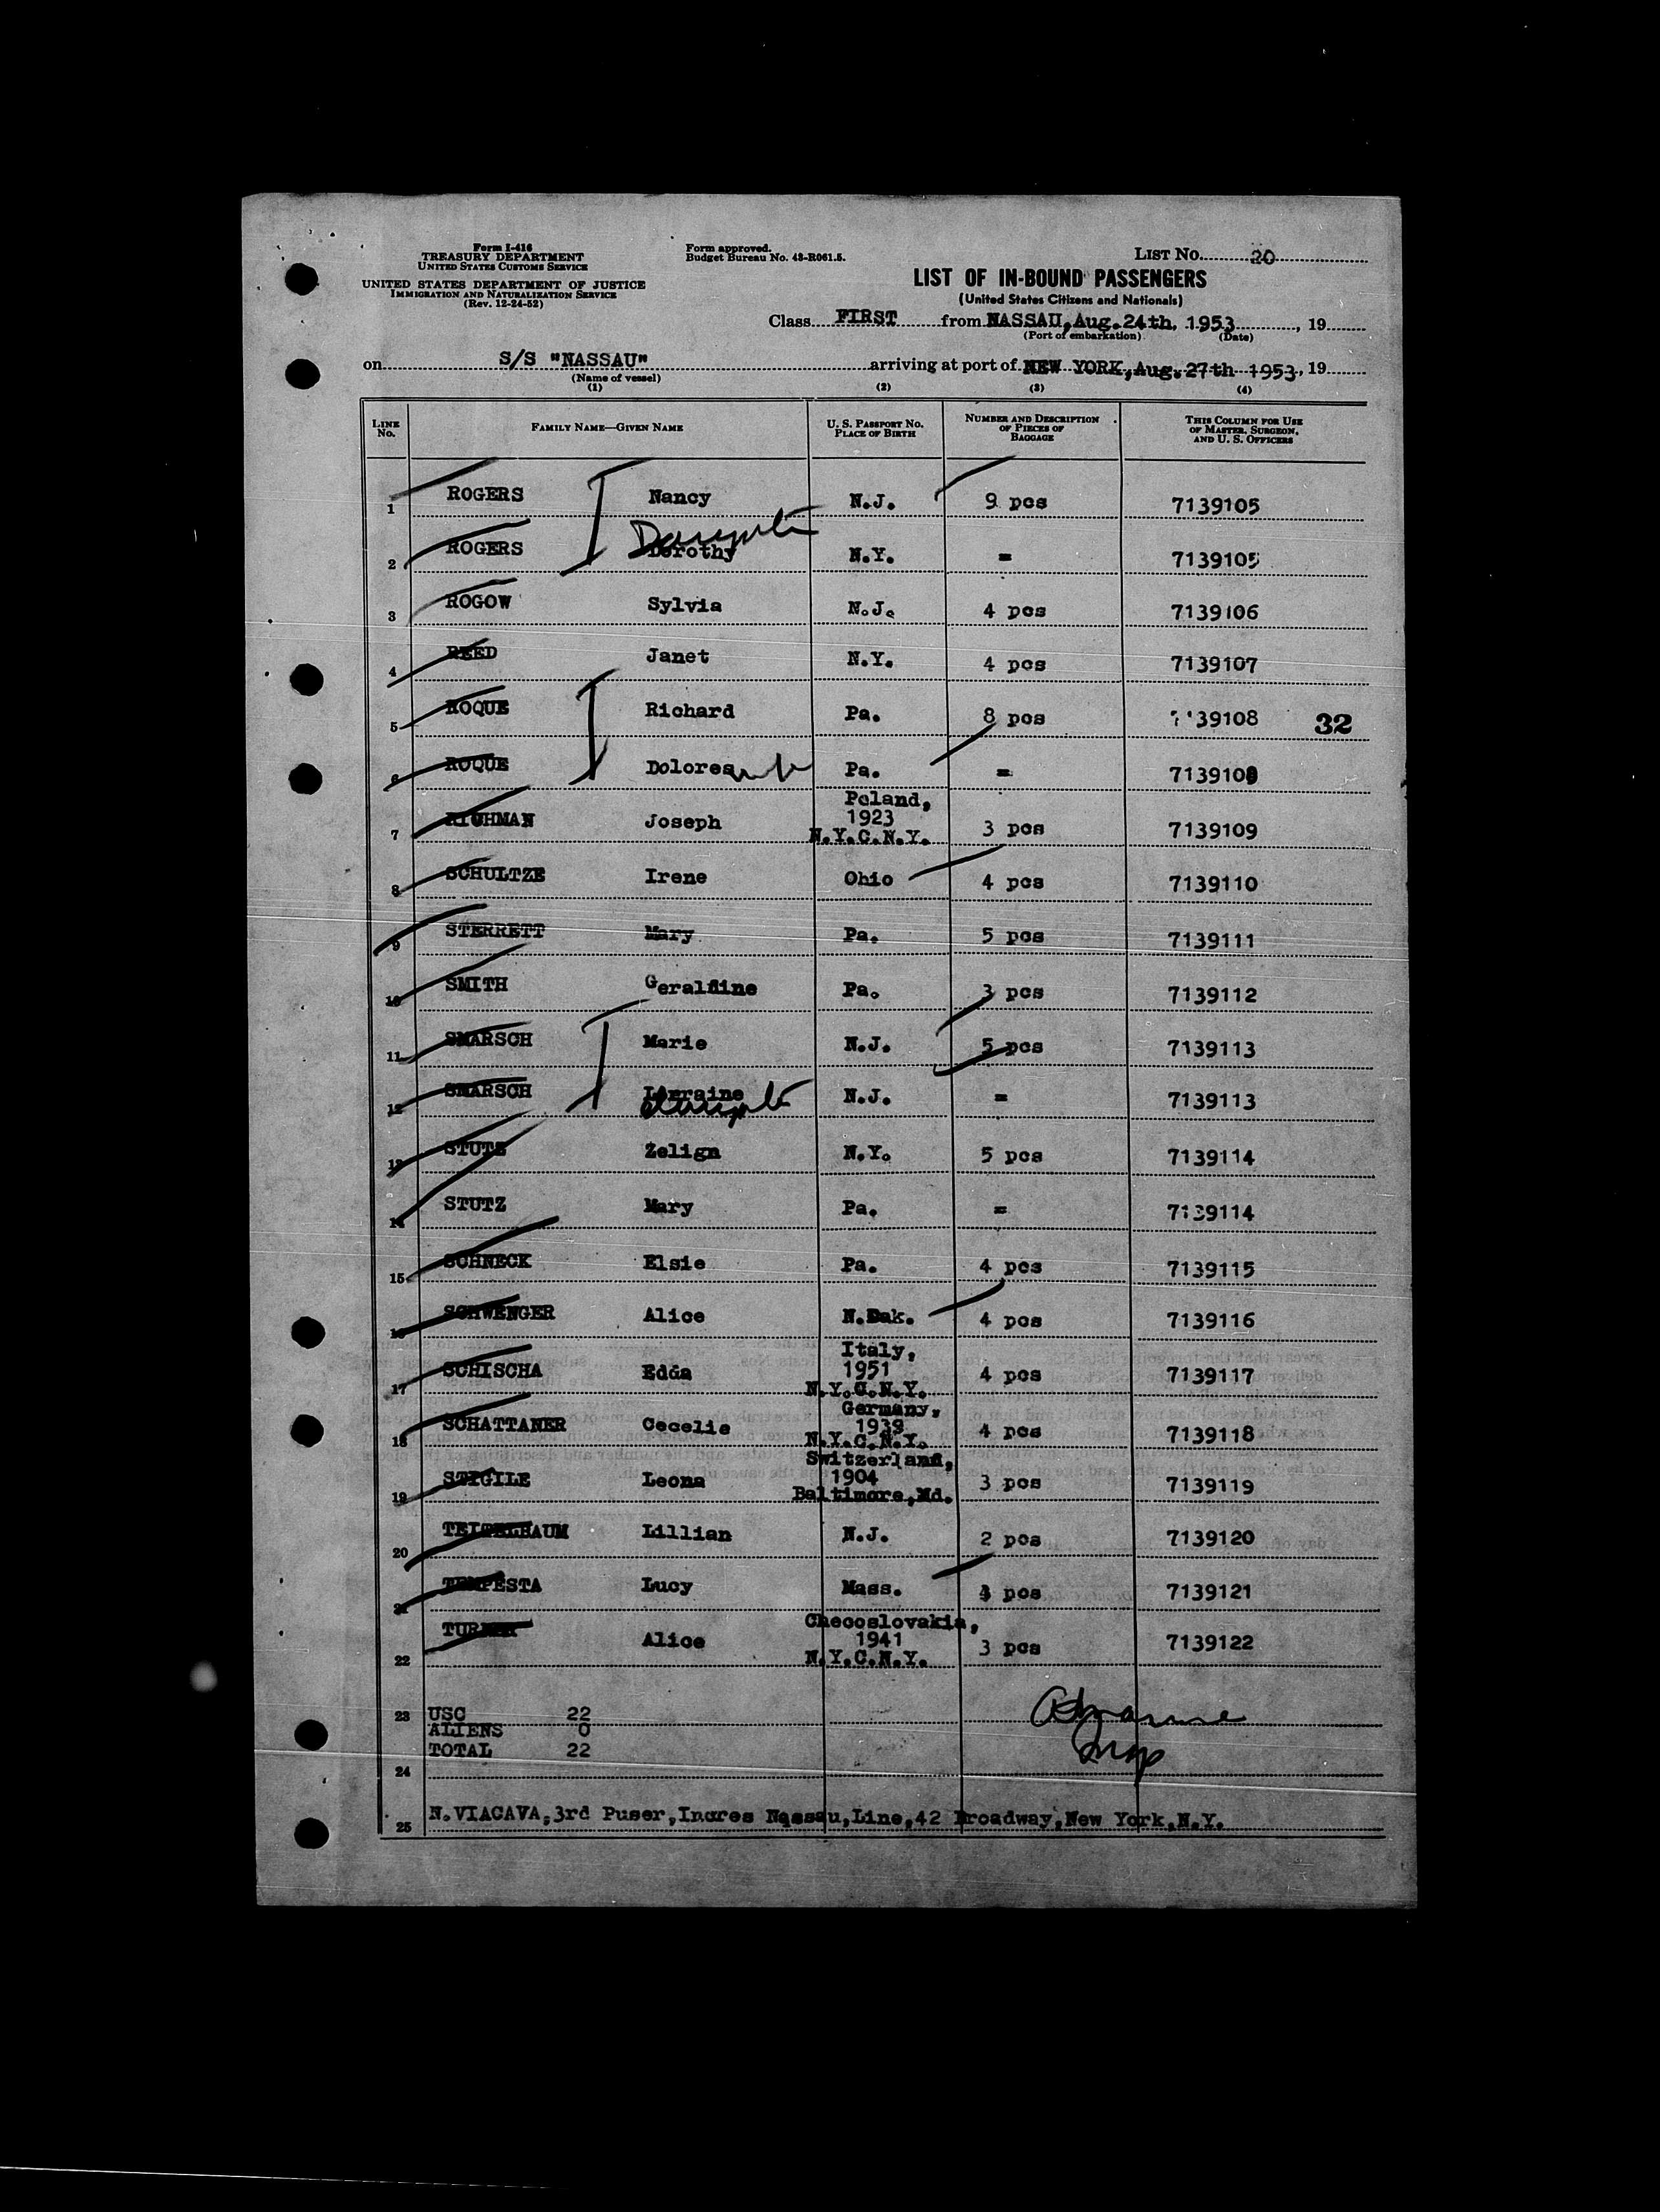 Form I-416
TREASURY DEPARTMENT
UNITED STATES CUSTOMS SERVICE
UNITED STATES DEPARTMENT OF JUSTICE
IMMIGRATION AND NATURALIZATION SERVICE
(Rev. 12-24-52)
Form approved.
Budget Bureau No. 43-R061.5.
LIST No. 20
LIST OF IN-BOUND PASSENGERS
(United States Citizens and Nationals)
Class FIRST from NASSAU, Aug. 24th, 1953, 19
(Port of embarkation) (Date)
on S/S "NASSAU" arriving at port of NEW YORK, Aug. 27th 1953, 19
(Name of vessel)
(1) (2) (3) (4)
LINE No. FAMILY NAME—GIVEN NAME U. S. PASSPORT No. PLACE OF BIRTH NUMBER AND DESCRIPTION OF PIECES OF BAGGAGE THIS COLUMN FOR USE OF MASTER, SURGEON, AND U. S. OFFICERS
1 ROGERS Nancy N.J. 9 pcs 7139105
Daughter
2 ROGERS Dorothy N.Y. = 7139105
3 ROGOW Sylvia N.J. 4 pcs 7139106
4 REED Janet N.Y. 4 pcs 7139107
5 ROQUE Richard Pa. 8 pcs 7139108 32
6 ROQUE Dolores wife Pa. = 7139108
7 RICHMAN Joseph Poland, 1923 N.Y.C.N.Y. 3 pcs 7139109
8 SCHULTZE Irene Ohio 4 pcs 7139110
9 STERRETT Mary Pa. 5 pcs 7139111
10 SMITH Geraldine Pa. 3 pcs 7139112
11 SMARSCH Marie N.J. 5 pcs 7139113
12 SMARSCH Lorraine N.J. = 7139113
daughter
13 STUTZ Zelign N.Y. 5 pcs 7139114
14 STUTZ Mary Pa. = 7139114
15 SCHNECK Elsie Pa. 4 pcs 7139115
16 SCHWENGER Alice N.Dak. 4 pcs 7139116
17 SCHISCHA Edda Italy, 1951 N.Y.C.N.Y. 4 pcs 7139117
18 SCHATTANER Cecelie Germany, 1939 N.Y.C.N.Y. 4 pcs 7139118
19 STIGILE Leona Switzerland, 1904 Baltimore, Md. 3 pcs 7139119
20 TEITELBAUM Lillian N.J. 2 pcs 7139120
21 TEMPESTA Lucy Mass. 3 pcs 7139121
22 Alice Checoslovakia, 1941 N.Y.C.N.Y. 3 pcs 7139122
23 USC 22
ALIENS 0
TOTAL 22
24
25 N.VIACAVA, 3rd Puser, Incres Nassau, Line, 42 Broadway, New York, N.Y.